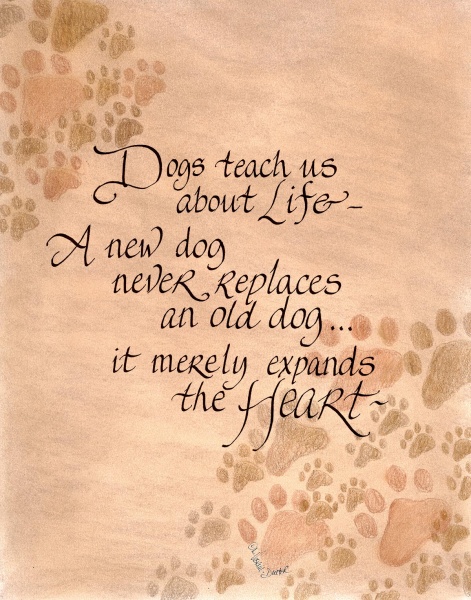 Dogs teach us
about Life~
A new dog
never replaces
an old dog...
it merely expands
the Heart~